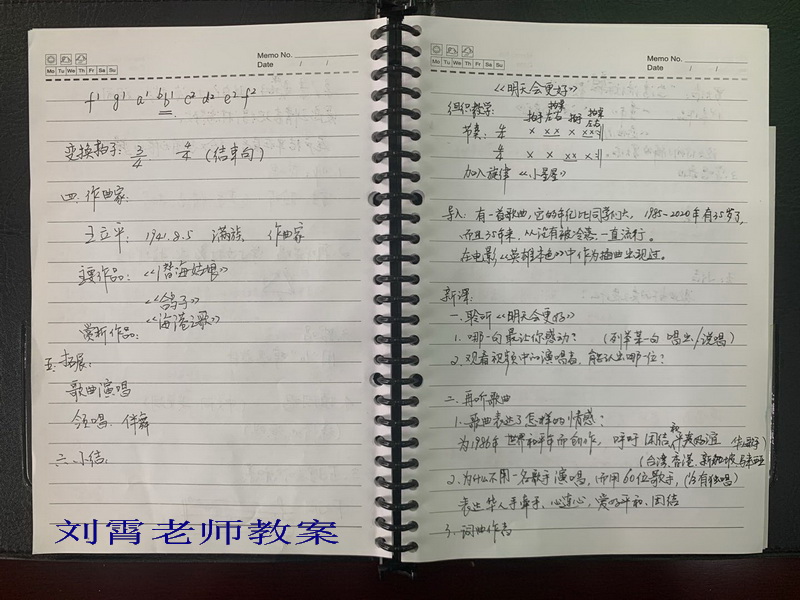 Memo No.
Mo Tu We Th Fr Sa Su
Date / /
f¹ g¹ a¹ ᵇb¹ c² d² e² f²
变换拍子: 3/4 4/4 (结束句)
四: 作曲家:
王立平: 1941.8.5 满族、作曲家
主要作品: 《潜海姑娘》
《鸽子》
赏析作品: 《海港之歌》
五: 拓展:
歌曲演唱
领唱、伴舞
六: 小结:
刘霄老师教案
Memo No.
Mo Tu We Th Fr Sa Su
Date / /
《明天会更好》
组织教学:
节奏: 4/4 × ×× × ××
4/4 × × ×× ×
加入旋律 《小星星》
导入: 有一首歌曲,它的年纪比同学们大, 1985-2020年有35岁了,
而且35年来, 从没有被冷落, 一直流行。
在电影《英雄本色》中作为插曲出现过。
新课:
一、聆听《明天会更好》
1. 哪一句最让你感动? (列举某一句 唱出/说唱)
2. 观看视频中的演唱者, 能认出哪一位?
二、再听歌曲
1. 歌曲表达了怎样的情感?
为1986年世界和平年而创作, 呼吁 团结、和平
(台湾、香港、新加坡、马来西亚
2. 为什么不用一名歌手演唱, 而用60位歌手, (没有独唱)
表达华人手牵手、心连心, 爱好平和、团结
3. 词曲作者